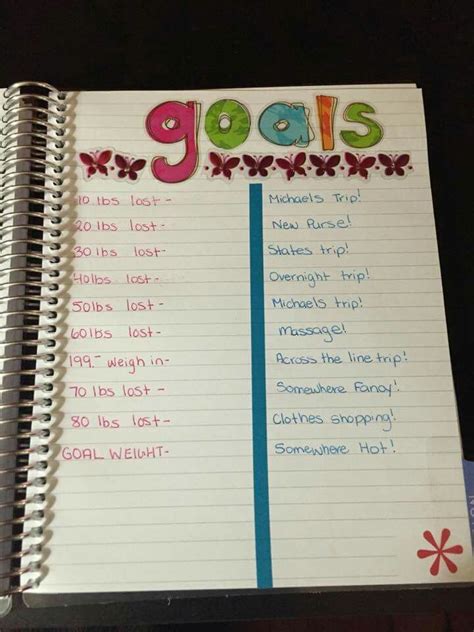 goals
10 lbs lost- Michaels Trip!
20 lbs lost- New Purse!
30 lbs lost- States trip!
40lbs lost- Overnight trip!
50lbs lost- Michaels trip!
60lbs lost- massage!
199.- weigh in- Across the line trip!
70 lbs lost- Somewhere Fancy!
80 lbs lost- Clothes shopping!
GOAL WEIGHT- Somewhere Hot!